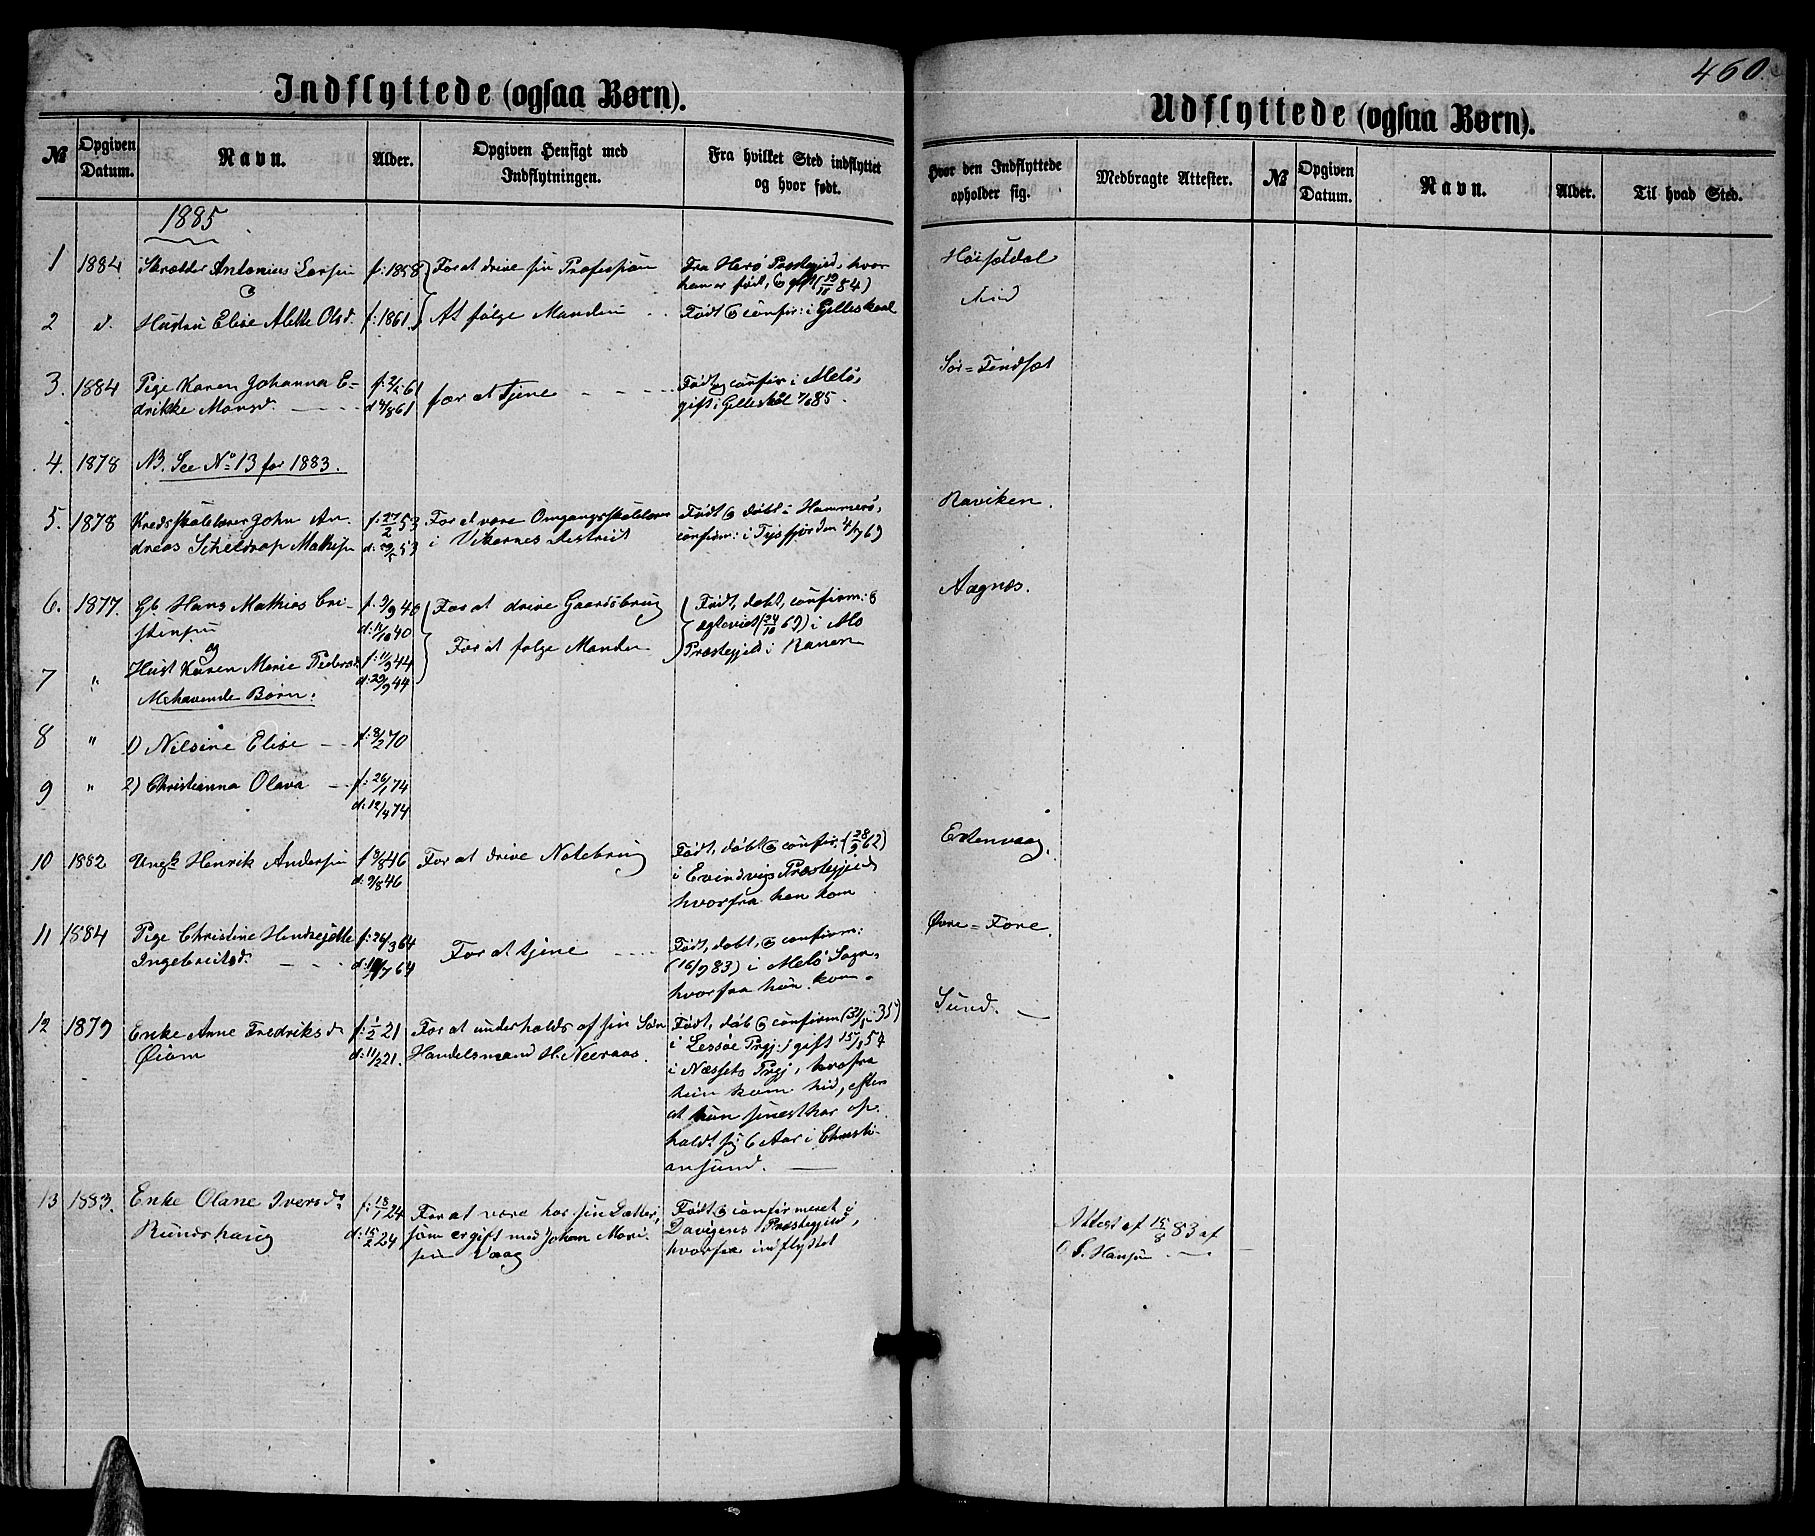 460.
Indflyttede (ogsaa Børn).
Udflyttede (ogsaa Børn).
№
Opgiven Datum.
Navn.
Alder.
Opgiven Hensigt med Indflytningen.
Fra hvilket Sted indflyttet og hvor født.
Hvor den Indflyttede opholder sig.
Medbragte Attester.
№
Opgiven Datum.
Navn.
Alder.
Til hvad Sted.
1885
1 1884 Skrædder Antonius Larsen f: 1858 For at drive sin Profession Fra Herø Præstegjeld, hvor
han er født, & gift (19/11 84)
2 d. Hustru Elise Alette Olsd. f: 1861 At følge Manden Født & confir: i Gilleskaal
3. 1884 Pige Karen Johanna E-
drikke Monsd. for at tjene Født og confir i Melø,
gift i Gilleskål
4. 1878 NB. See No 13 for 1883.
5. 1878 Kredsskolelærer John An-
dreas Scheldrop Mathisen f: 27/2 53 For at være Omgangsskolelærer
i Vikernes District Født & døbt i Hammerø,
confirm: i Tysfjorden 4/7 69
Raviken
6. 1877. Gb Hans Mathias Cri-
stensen f: 9/9 40 d: 11/10 40 For at drive Gaardsbrug Født, døbt, confirm: &
ægteviet (24/10 69) i Mo
Præstegjeld i Ranen
Aagnæs.
og
7 " Hust Karen Marie Peders f: 11/9 44 d: 29/9 44 For at følge Manden
Mehavende Børn:
8 " 1) Nilsine Elise f: 8/2 70
9 " 2) Christianna Olava f: 26/1 74
d: 12/4 74
10 1882 Ungk Henrik Andersen f 3/8 46
d: 9/8 46 For at drive Notebrug Født, døbt & confir. (28/9 62)
i Evindvigs Præstegjeld
hvorfra han kom
11 1884 Pige Christine
Ingebreitsd. f: 26/3 64 For at tjene Født, døbt, & confirm:
(16/9 83) i Melø Sogn,
hvorfra hun kom.
Øvre = Fore.
12 1879 Enke Anne Fredriksd
Øiom f: 1/2 21
d: 11/2 21. For at underholds af sin Søn
Handelsmand H. Neeraas. Født, døb & confirm
i Lessøe Prgj: gift 15/1 54
i Næssets Prgj, hvofra
hun kom hid, efter
at hun senest har op-
holdt sig 6 Aar i Christi-
ansund.
Sund.
13 1883. Enke Olane Iversd.
Rundhaug f: 18/1 24
d: 15/2 24 For at være hos sin Datter,
som er gift med Johan Mari-
sen Vaag Født & confirmeret i
Davigens Præstegjeld,
hvorfra indflyttet
Attest af 15/8 83 af
Hansen
Sør = Findsæt